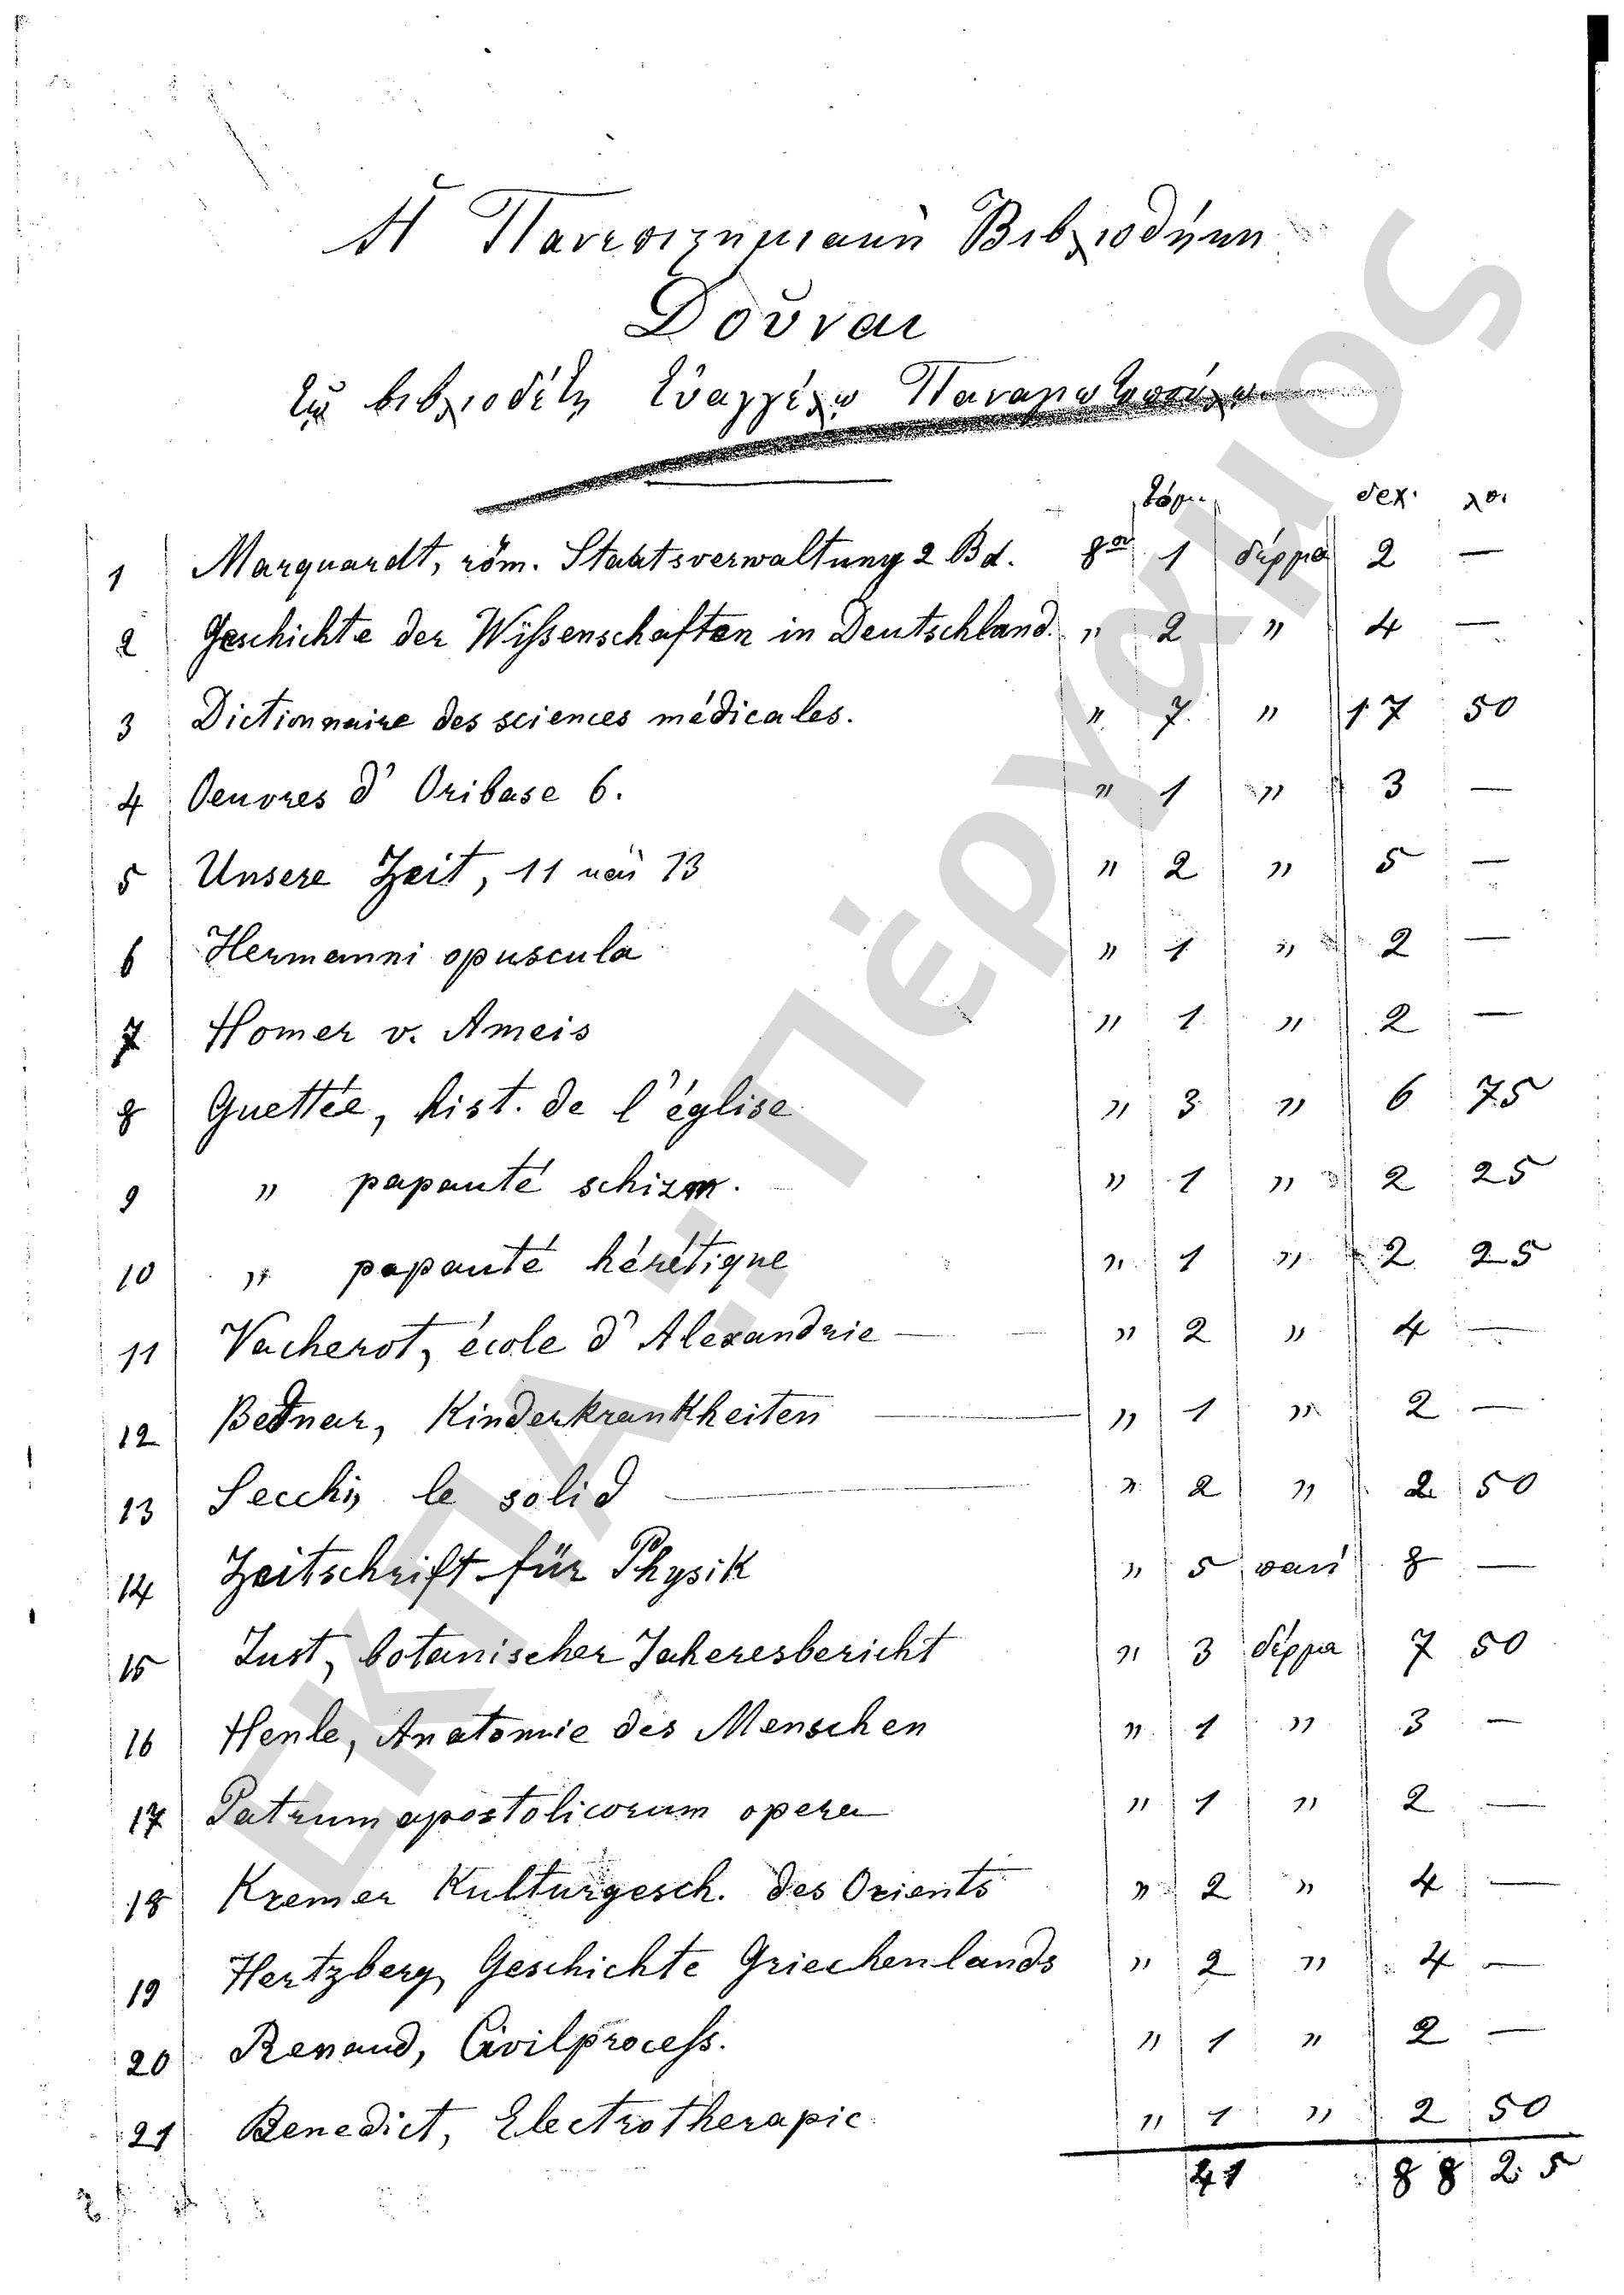 Ἡ Πανεπιστημιακὴ Βιβλιοθήκη
Δοῦναι
τῷ βιβλιοδέτῃ Εὐαγγέλῳ
τόμ. δεχ. λεπ.
1 Marquardt, röm. Staatsverwaltung 2 Bd. 8ον 1 δέρμα 2 —
2 Geschichte der Wißenschaften in Deutschland. " 2 " 4 —
3 Dictionnaire des sciences médicales. " 7 " 17 50
4 Oeuvres d' Oribase 6. " 1 " 3 —
5 Unsere Zeit, 11 καὶ 13 " 2 " 5 —
6 Hermanni opuscula " 1 " 2 —
7 Homer v. Ameis " 1 " 2 —
8 Guettée, hist. de l'église " 3 " 6 75
9 " papauté schizm. " 1 " 2 25
10 " papauté hérétique " 1 " 2 25
11 Vacherot, école d' Alexandrie — " 2 " 4 —
12 Bednar, Kinderkrankheiten — " 1 " 2 —
13 Secchi, le solid — " 2 " 2 50
14 Zeitschrift für Physik " 5 πανί 8 —
15 Just, botanischer Jaheresbericht " 3 δέρμα 7 50
16 Henle, Anatomie des Menschen " 1 " 3 —
17 Patrum apostolicorum opera " 1 " 2 —
18 Kremer Kulturgesch. des Orients " 2 " 4 —
19 Hertzberg, Geschichte Griechenlands " 2 " 4 —
20 Renaud, Civilproceß. " 1 " 2 —
21 Benedict, Electrotherapie " 1 " 2 50
41 88 25
ΕΚΠΑ.: Πέργαμος